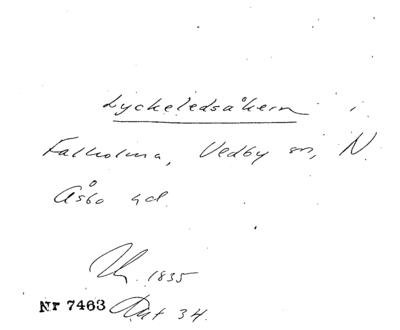 Lyckeledsåkern
Falholma, Vedby sn, N.
Åsbo hd
1835
Nr 7463 Akt 34.